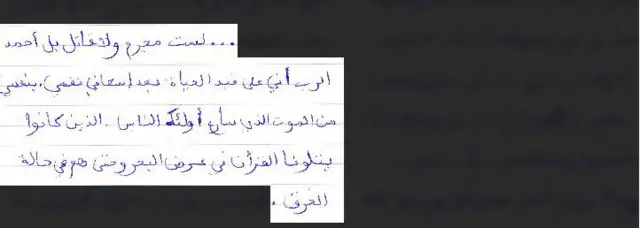 ...لست مجرم ولا قاتل بل أحمد
الرب أني على قيد الحياة. بعد إسعافي نفسي، بنفسي
من الموت الذي سارع أولئك الناس. الذين كانوا
يتلونا القرأن في عرض البحر وحتى هم في حالة
الغرق.